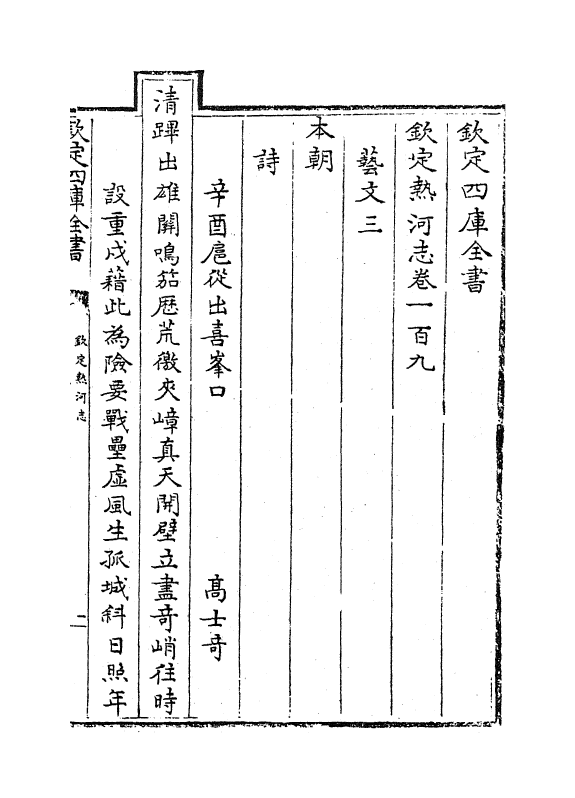 欽定四庫全書
欽定熱河志卷一百九
藝文三
本朝
詩
辛酉扈從出喜峯口　高士奇
清蹕出雄關鳴笳歴荒徼夾嶂真天開壁立盡奇峭往時
設重戍藉此為險要戰壘虚風生孤城斜日照年
欽定四庫全書
欽定熱河志